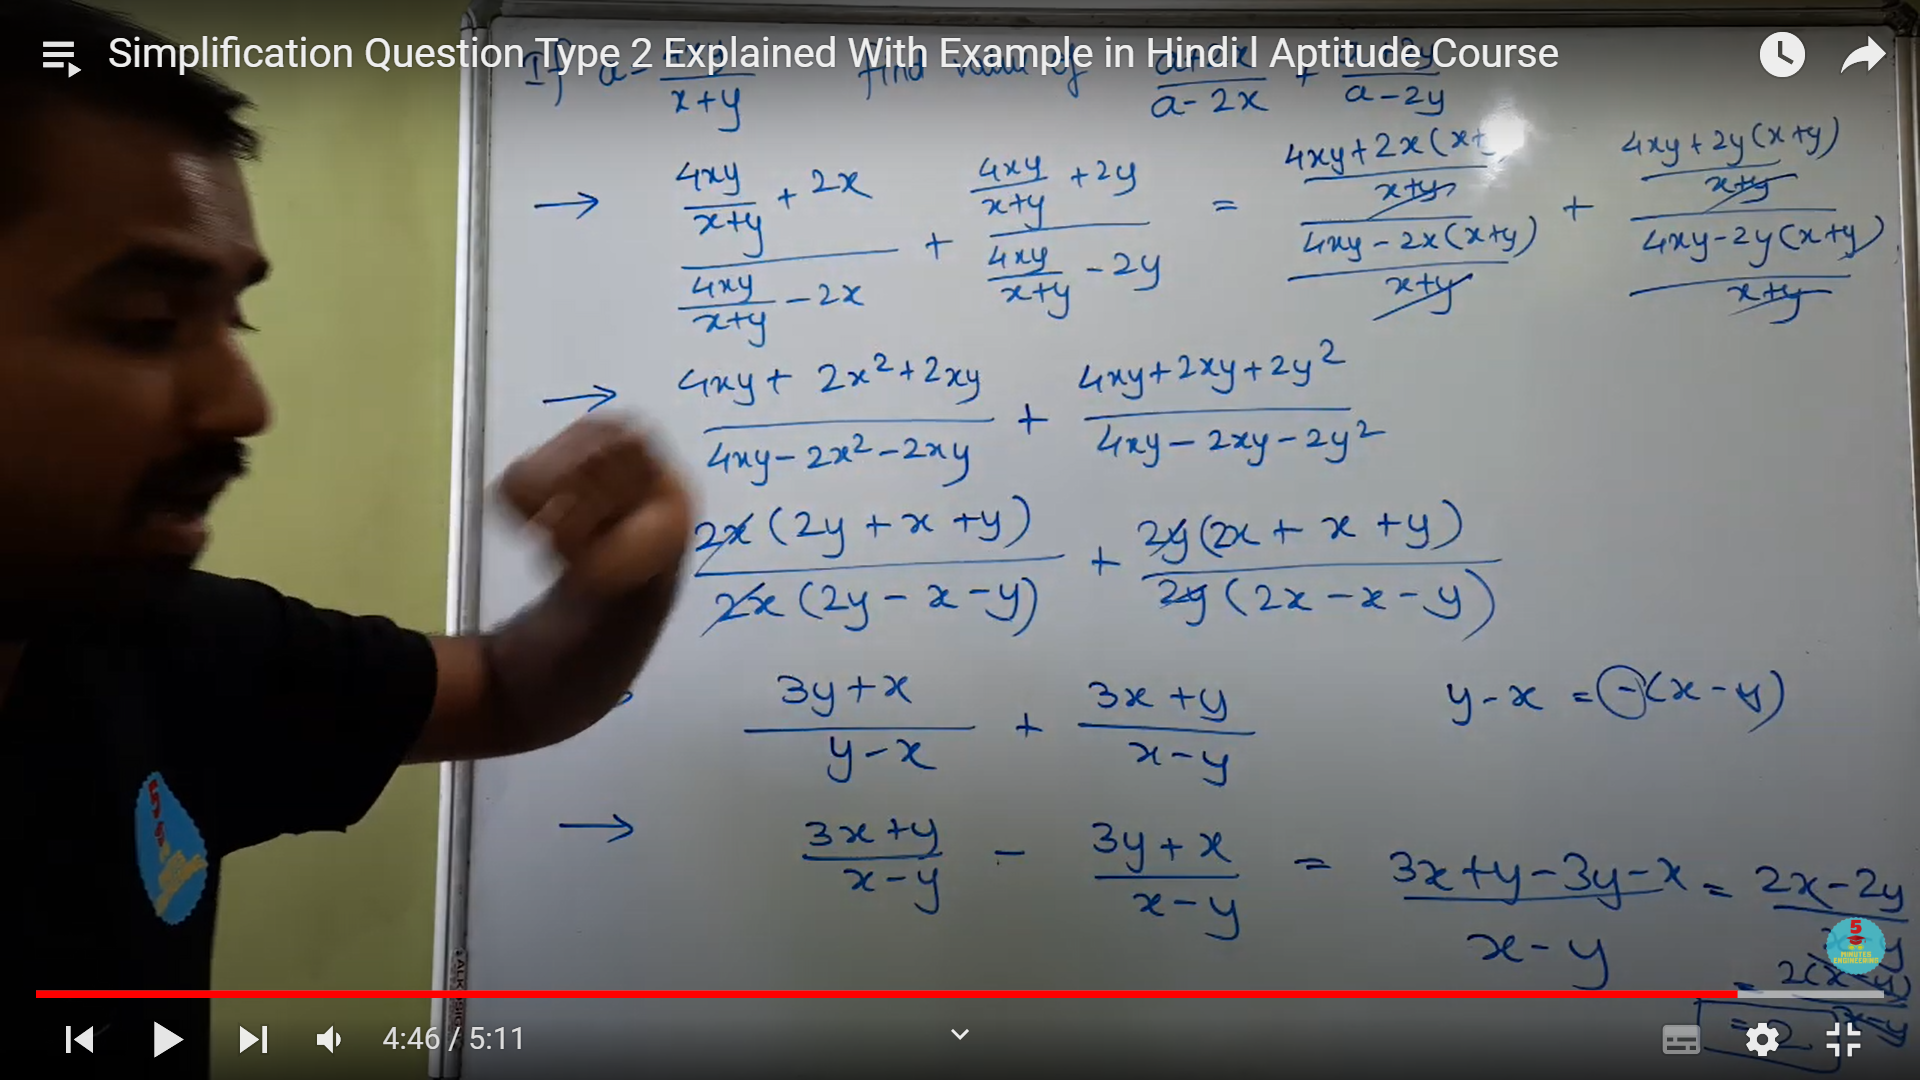 Simplification Question Type 2 Explained With Example in Hindi l Aptitude Course
If a = 4xy/(x+y) find value of (a+2x)/(a-2x) + (a+2y)/(a-2y)
→ (4xy/(x+y) + 2x)/(4xy/(x+y) - 2x) + (4xy/(x+y) + 2y)/(4xy/(x+y) - 2y) = ((4xy+2x(x+)/(x+y))/((4xy-2x(x+y))/(x+y)) + ((4xy+2y(x+y))/(x+y))/((4xy-2y(x+y))/(x+y))
→ (4xy+2x²+2xy)/(4xy-2x²-2xy) + (4xy+2xy+2y²)/(4xy-2xy-2y²)
2x(2y+x+y)/2x(2y-x-y) + 2y(2x+x+y)/2y(2x-x-y)
(3y+x)/(y-x) + (3x+y)/(x-y) y-x = -(x-y)
→ (3x+y)/(x-y) - (3y+x)/(x-y) = (3x+y-3y-x)/(x-y) = (2x-2y)/(x-y)
= 2(x-y)/(x-y)
= 2
5
MINUTES
ENGINEERING
4:46 / 5:11